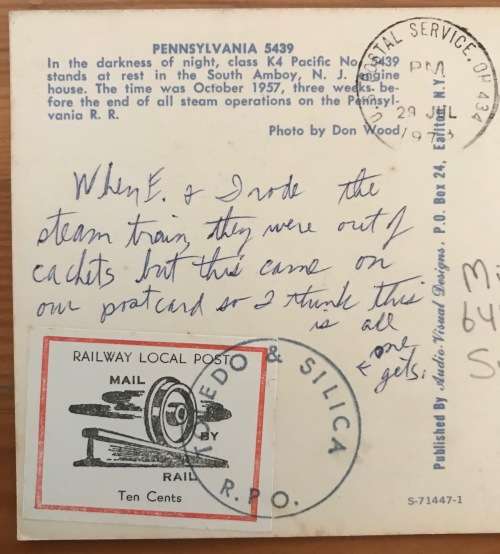 PENNSYLVANIA 5439
In the darkness of night, class K4 Pacific No. 5439
stands at rest in the South Amboy, N. J. engine
house. The time was October 1957, three weeks be-
fore the end of all steam operations on the Pennsyl-
vania R. R.
Photo by Don Wood
U.S. POSTAL SERVICE, OH 434
PM
29 JUL
1973
When E. & I rode the
steam train, they were out of
cachets but this came on
our postcard so I think this
is all
one
gets.
RAILWAY LOCAL POST
MAIL
BY
RAIL
Ten Cents
TOLEDO & SILICA
R.P.O.
Published By Audio-Visual Designs, P.O. Box 24, Earlton, N.Y.
S-71447-1